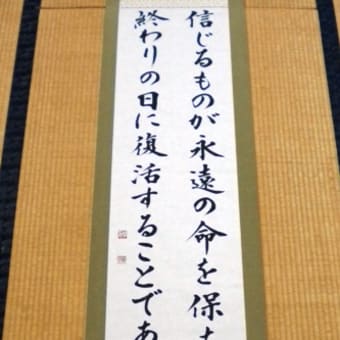 信じるものが永遠の命を保
終わりの日に復活することであ